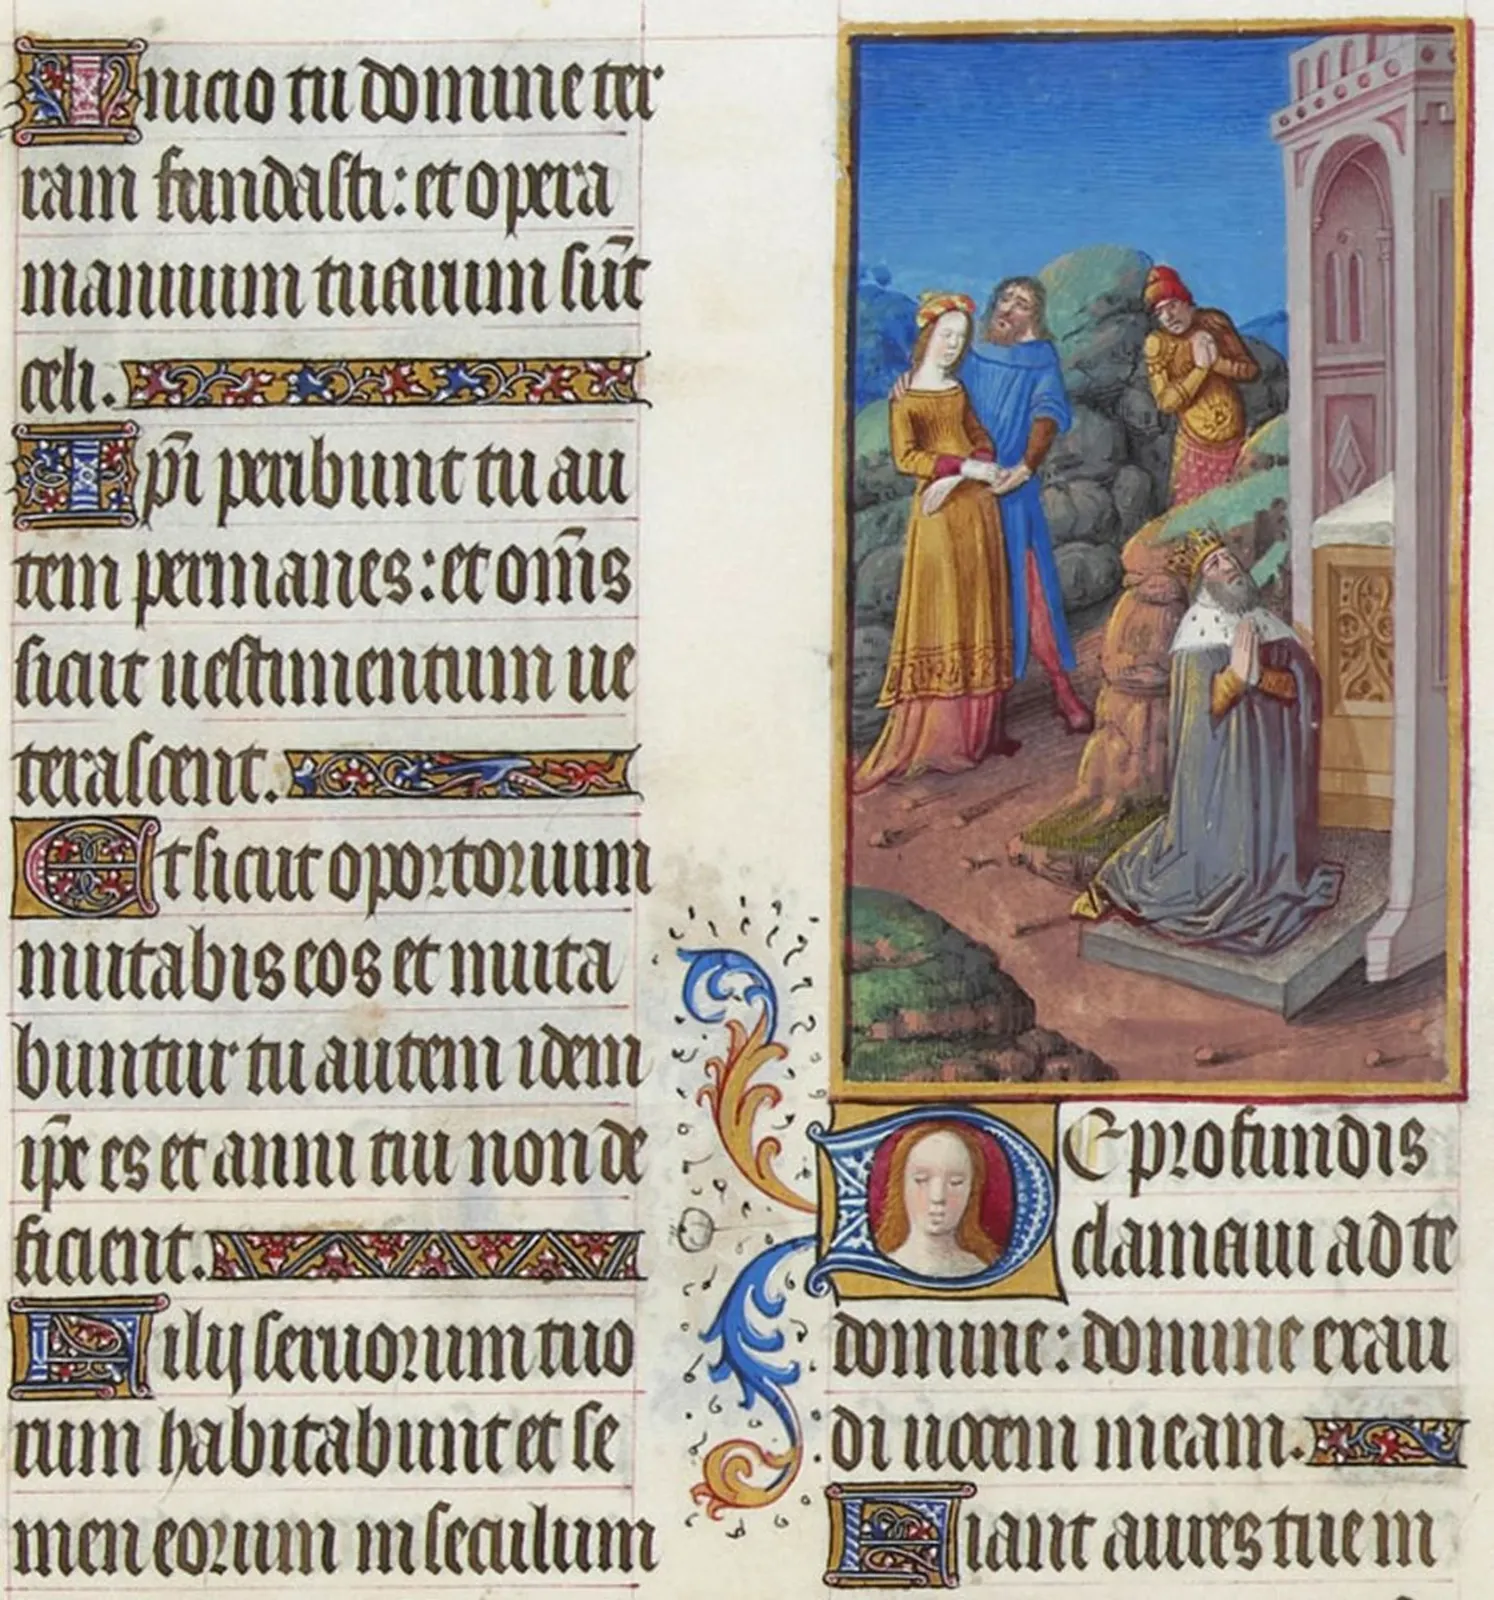 Inicio tu domine ter
ram fundasti: et opera
manuum tuarum sūt
celi.
Ip̄i peribunt tu au
tem permanes: et om̄s
sicut uestimentum ue
terascent.
Et sicut oportorium
mutabis eos et muta
buntur tu autem idem
ip̄e es et anni tui non de
ficient.
Filij seruorum tuo
rum habitabunt et se
men eorum in seculum
De profundis
clamaui ad te
domine: domine exau
di uocem meam.
Fiant aures tue in